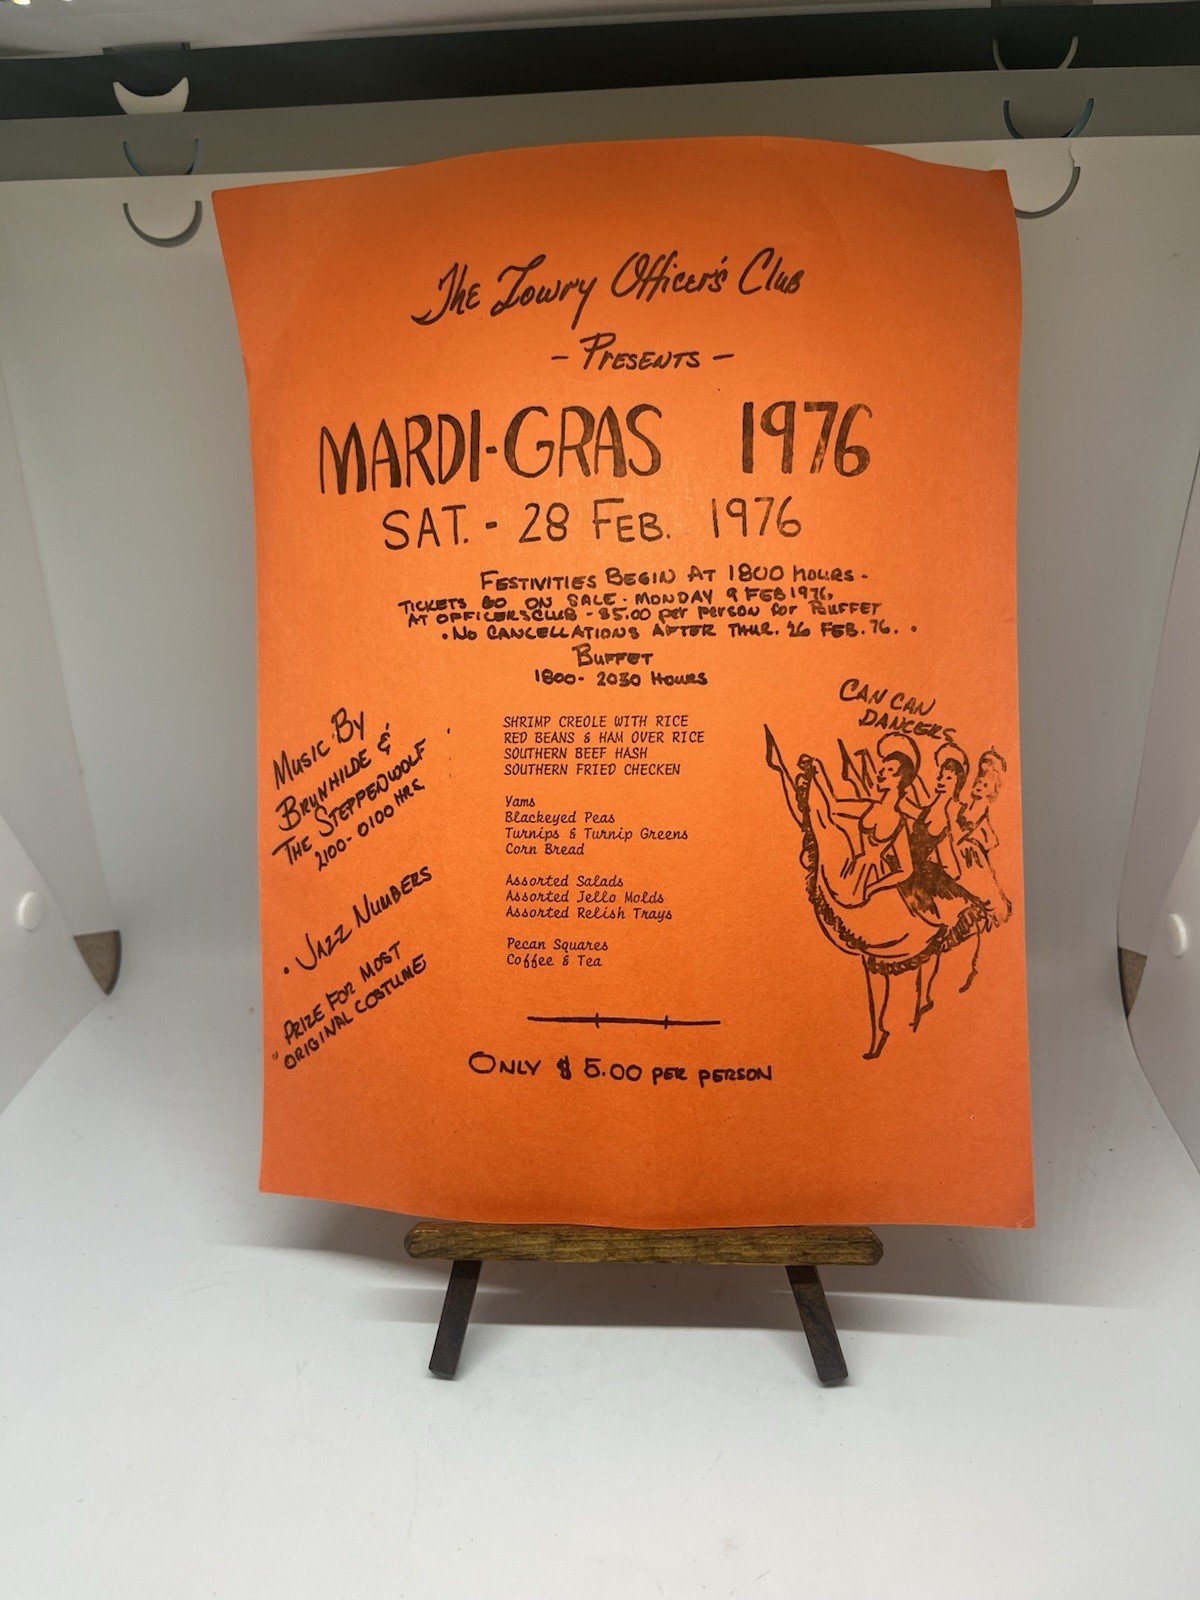 The Lowry Officer's Club
- Presents -
MARDI-GRAS 1976
SAT. - 28 FEB. 1976
FESTIVITIES BEGIN AT 1800 HOURS -
TICKETS GO ON SALE - MONDAY 9 FEB 1976,
AT OFFICERSCLUB - $5.00 per person for BUFFET
. NO CANCELLATIONS AFTER THUR. 26 FEB. 76. .
BUFFET
1800 - 2030 HOURS
MUSIC BY
BRUNHILDE &
THE STEPPENWOLF
2100 - 0100 HRS.
. JAZZ NUMBERS
. PRIZE FOR MOST
ORIGINAL COSTUME
SHRIMP CREOLE WITH RICE
RED BEANS & HAM OVER RICE
SOUTHERN BEEF HASH
SOUTHERN FRIED CHECKEN
Yams
Blackeyed Peas
Turnips & Turnip Greens
Corn Bread
Assorted Salads
Assorted Jello Molds
Assorted Relish Trays
Pecan Squares
Coffee & Tea
CAN CAN
DANCERS
ONLY $5.00 PER PERSON